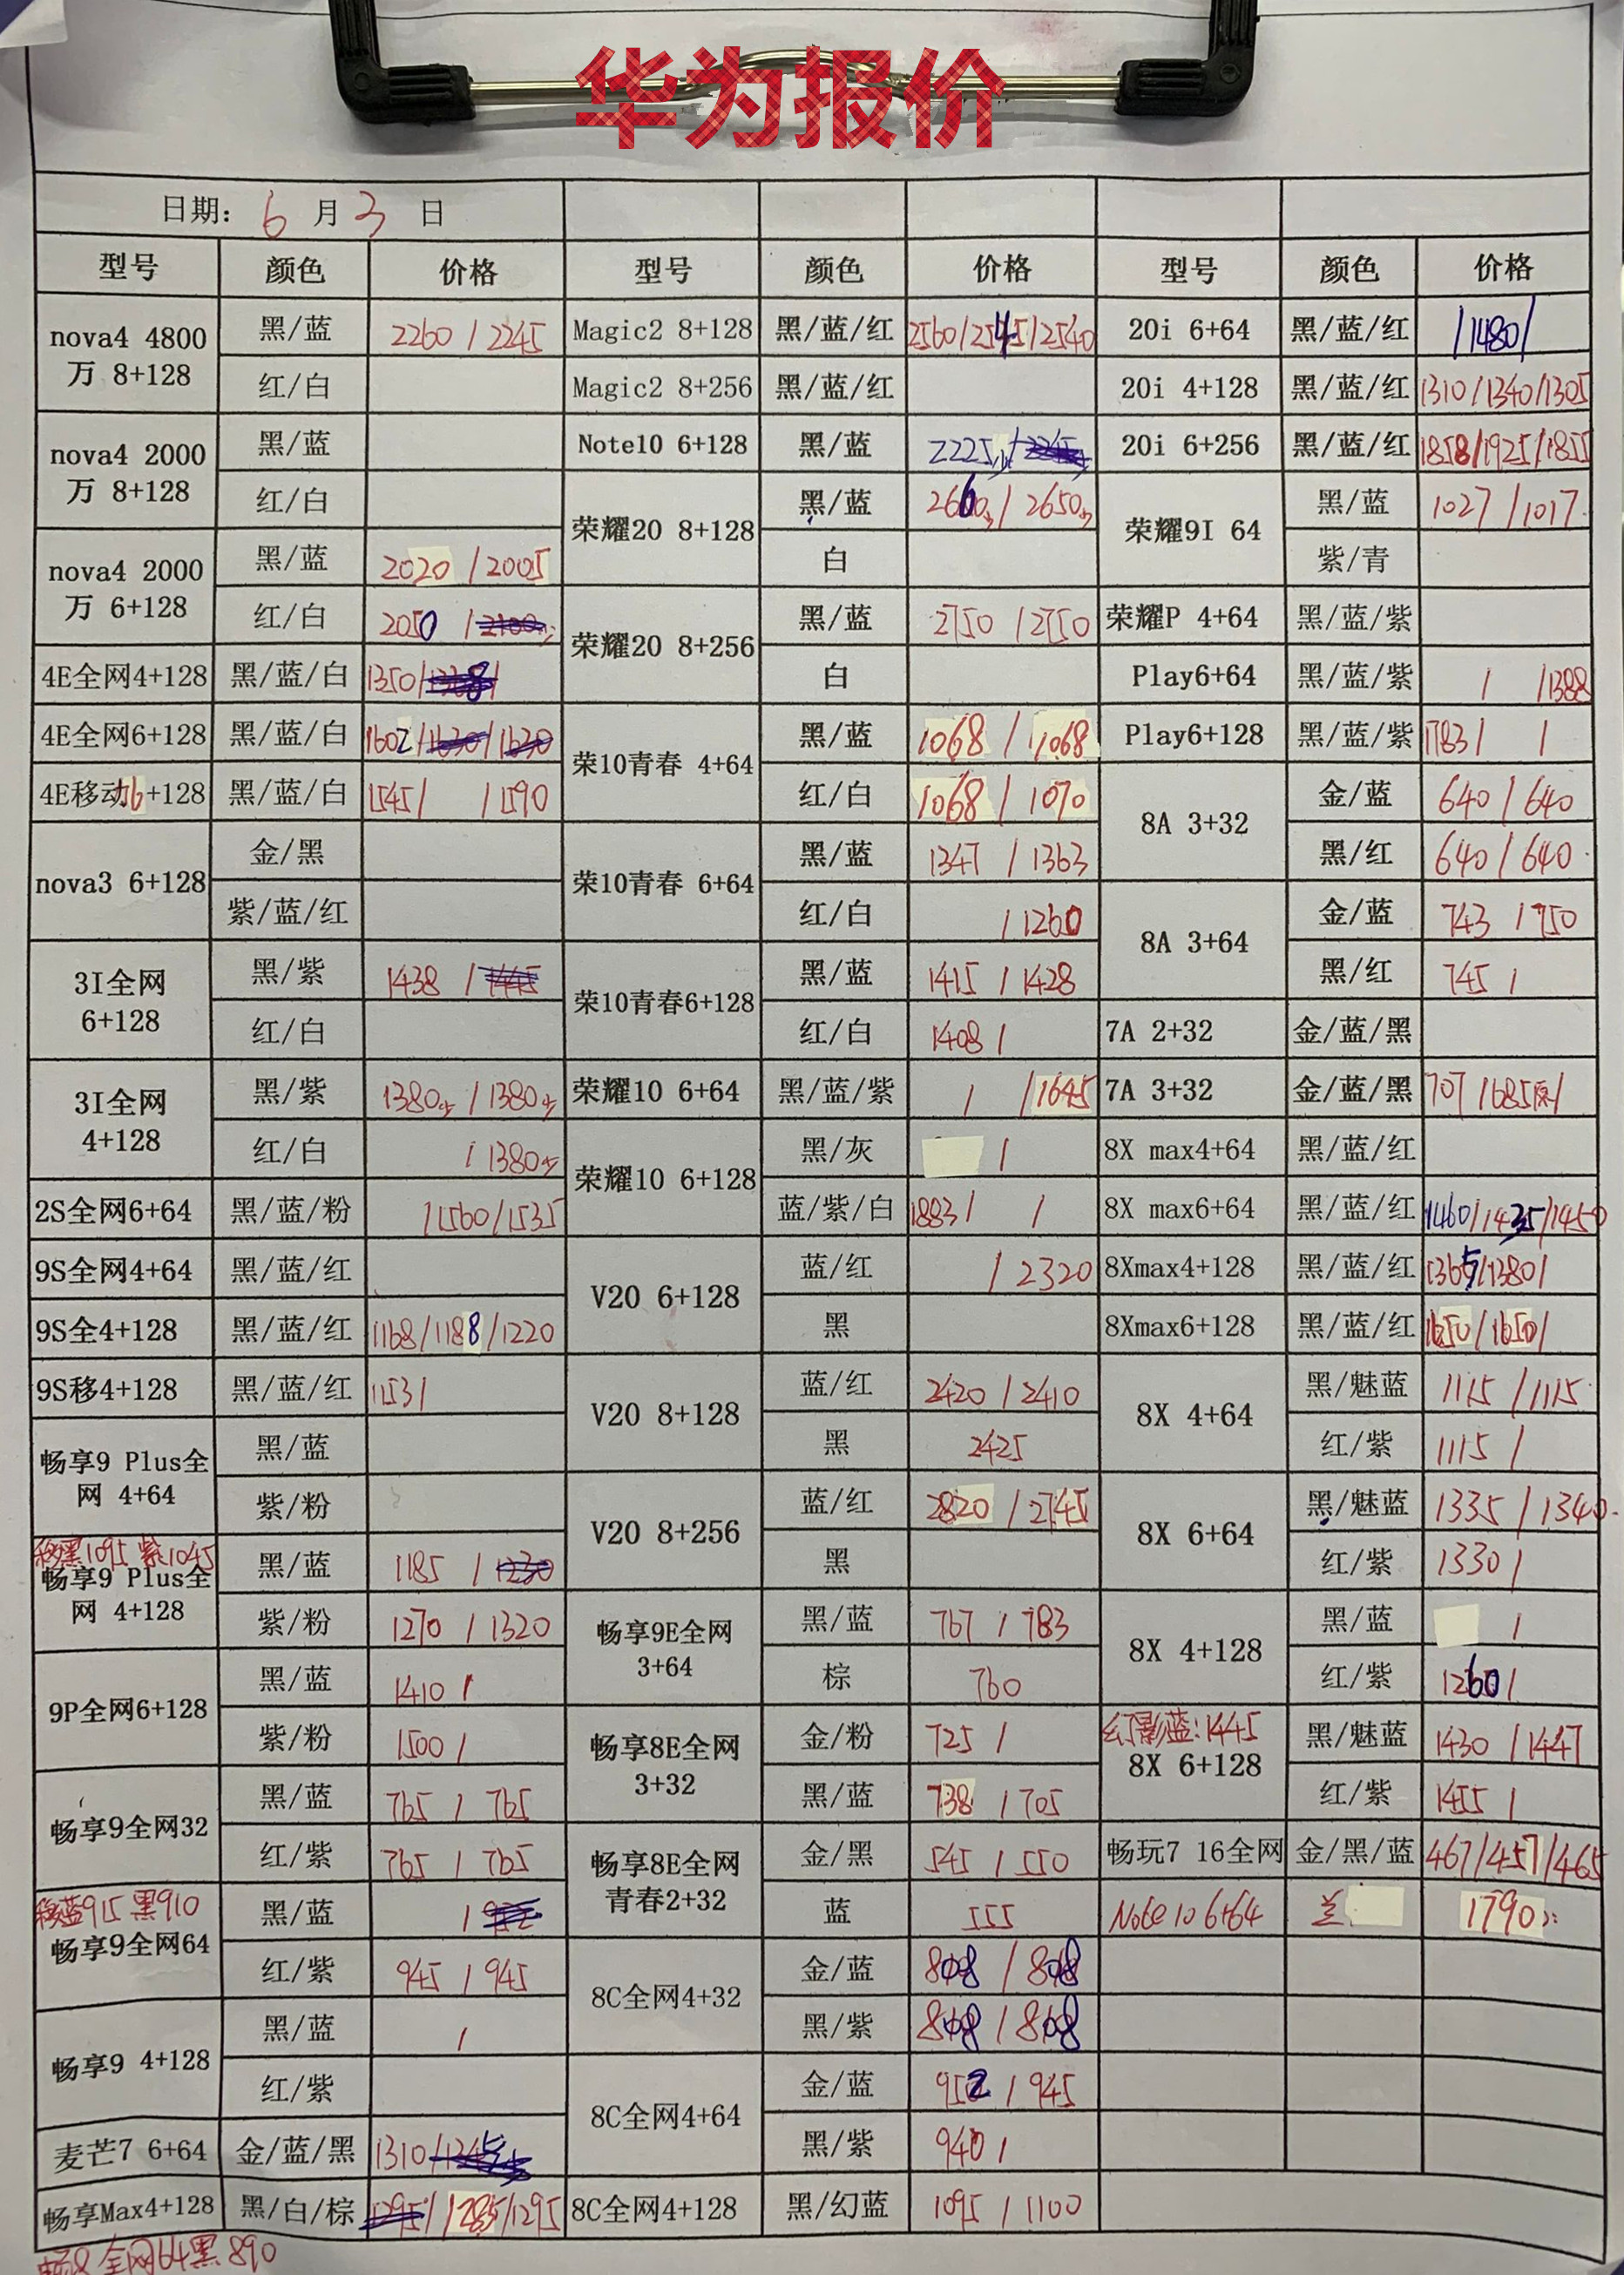 华为报价
日期: 6 月 3 日
型号 颜色 价格 型号 颜色 价格 型号 颜色 价格
nova4 4800万 8+128 黑/蓝 2260 / 2245
红/白
nova4 2000万 8+128 黑/蓝
红/白
nova4 2000万 6+128 黑/蓝 2020 / 2005
红/白 2050 /
4E全网4+128 黑/蓝/白 1350/
4E全网6+128 黑/蓝/白 1602/1630/1630
4E移动6+128 黑/蓝/白 1545/ /1590
nova3 6+128 金/黑
紫/蓝/红
3I全网 6+128 黑/紫 1438 /
红/白
3I全网 4+128 黑/紫 1380少 / 1380少
红/白 / 1380少
2S全网6+64 黑/蓝/粉 /1560/1535
9S全网4+64 黑/蓝/红
9S全4+128 黑/蓝/红 1168/1188/1220
9S移4+128 黑/蓝/红 1153/
畅享9 Plus全网 4+64 黑/蓝
紫/粉
移黑1095 紫1045
畅享9 Plus全网 4+128 黑/蓝 1185 / 1230
紫/粉 1270 / 1320
9P全网6+128 黑/蓝 1410 /
紫/粉 1500 /
畅享9全网32 黑/蓝 765 / 765
红/紫 765 / 765
移蓝915 黑910
畅享9全网64 黑/蓝 /
红/紫 945 / 945
畅享9 4+128 黑/蓝 /
红/紫
麦芒7 6+64 金/蓝/黑 1310/
畅享Max4+128 黑/白/棕 1295/1285/1295
畅8全网64黑890
Magic2 8+128 黑/蓝/红 2560/2545/2540
Magic2 8+256 黑/蓝/红
Note10 6+128 黑/蓝 2225少/
荣耀20 8+128 黑/蓝 2660少/ 2650少
白
荣耀20 8+256 黑/蓝 2750 /2750
白
荣10青春 4+64 黑/蓝 1068 / 1068
红/白 1068 / 1070
荣10青春 6+64 黑/蓝 1347 / 1363
红/白 / 1260
荣10青春6+128 黑/蓝 1415 / 1428
红/白 1408 /
荣耀10 6+64 黑/蓝/紫 / /1645
荣耀10 6+128 黑/灰 /
蓝/紫/白 1883/ /
V20 6+128 蓝/红 / 2320
黑
V20 8+128 蓝/红 2420 / 2410
黑 2425
V20 8+256 蓝/红 2820 / 2745
黑
畅享9E全网 3+64 黑/蓝 767 / 783
棕 760
畅享8E全网 3+32 金/粉 725 /
黑/蓝 738 / 705
畅享8E全网青春2+32 金/黑 545 / 550
蓝 555
8C全网4+32 金/蓝 808 / 808
黑/紫 808 / 808
8C全网4+64 金/蓝 952 / 945
黑/紫 940 /
8C全网4+128 黑/幻蓝 1095 / 1100
20i 6+64 黑/蓝/红 /1480/
20i 4+128 黑/蓝/红 1310/1340/1305
20i 6+256 黑/蓝/红 1858/1925/1855
荣耀9I 64 黑/蓝 1027 /1017
紫/青
荣耀P 4+64 黑/蓝/紫
Play6+64 黑/蓝/紫 / /1388
Play6+128 黑/蓝/紫 1783/ /
8A 3+32 金/蓝 640 / 640
黑/红 640 / 640
8A 3+64 金/蓝 743 / 750
黑/红 745 /
7A 2+32 金/蓝/黑
7A 3+32 金/蓝/黑 707 /685原/
8X max4+64 黑/蓝/红
8X max6+64 黑/蓝/红 1460/1435/1450
8Xmax4+128 黑/蓝/红 1365/1380/
8Xmax6+128 黑/蓝/红 1650/1650/
8X 4+64 黑/魅蓝 1115 /1115
红/紫 1115 /
8X 6+64 黑/魅蓝 1335 / 1340
红/紫 1330 /
8X 4+128 黑/蓝 /
红/紫 1260 /
幻影蓝:1445
8X 6+128 黑/魅蓝 1430 / 1447
红/紫 1455 /
畅玩7 16全网 金/黑/蓝 467/457/465
Note 10 6+64 兰 1790